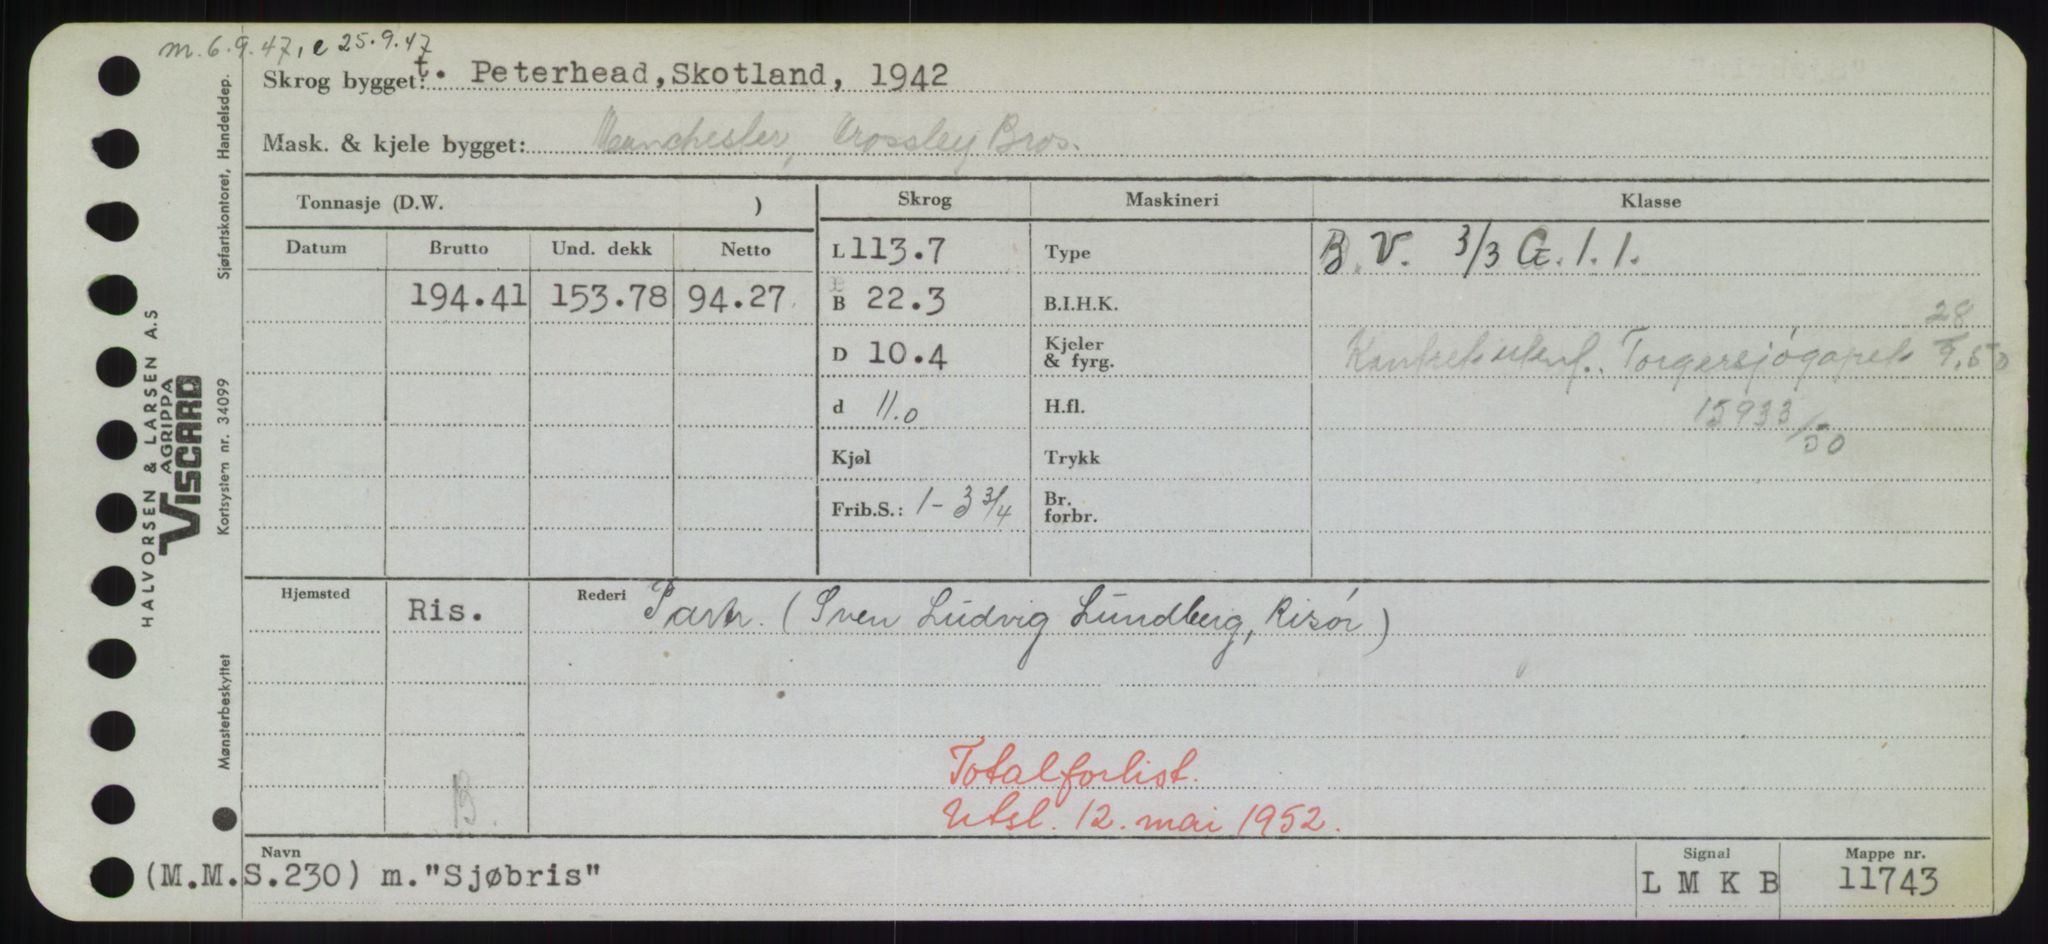 m. 6.9.47, e 25.9.47
Skrog bygget: t. Peterhead, Skotland, 1942
Mask. & kjele bygget: Manchester, Crossley Bros.
Tonnasje (D.W. )
Skrog
Maskineri
Klasse
Datum
Brutto
Und. dekk
Netto
194.41
153.78
94.27.
L 113.7
B 22.3
D 10.4
d 11.0
Kjøl
Frib.S.: 1 - 3 3/4
Type
B.I.H.K.
Kjeler & fyrg.
H.fl.
Trykk
Br. forbr.
B.V. 3/3 G.1.1.
Torgersjøgapet 28/9.50
15933/50
Hjemsted
Ris.
Rederi
Partr. (Sven Ludvig Lundberg, Risör)
Totalforlist.
Utsl. 12. mai 1952.
B.
Navn
(M.M.S.230) m. "Sjøbris"
Signal
L M K B
Mappe nr.
11743
HALVORSEN & LARSEN A.S
AGRIPPA
VISCARD
Sjøfartskontoret, Handelsdep.
Kortsystem nr. 34099
Mønsterbeskyttet